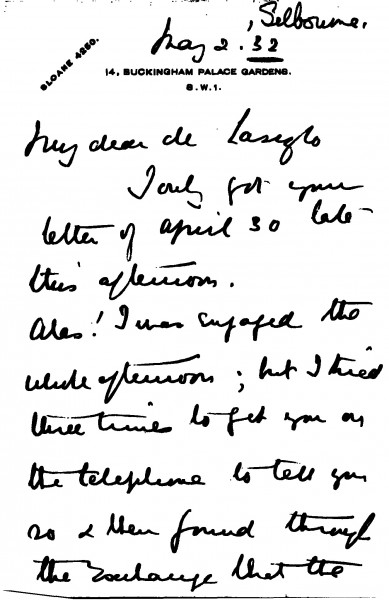 , Selbourne.
May 2. 32
SLOANE 4260.
14, BUCKINGHAM PALACE GARDENS.
S.W.1.
My dear de Laszlo
I only got your
letter of April 30 late
this afternoon.
Alas! I was engaged the
whole afternoon; but I tried
three times to get you on
the telephone to tell you
so & then found through
the Exchange that the